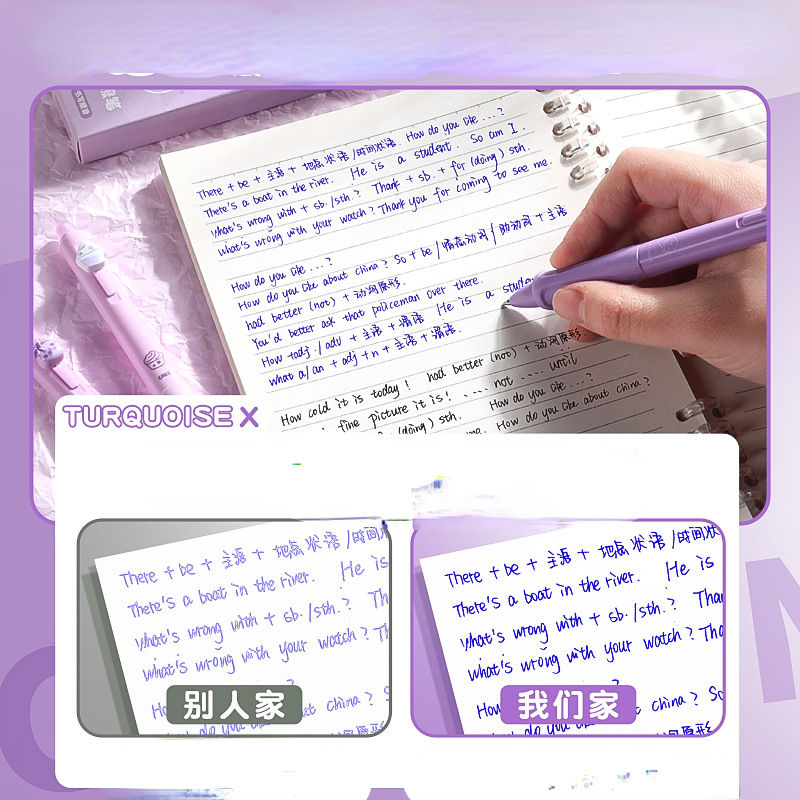 There + be + 主语 + 地点状语 / 时间状语. How do you like ...?
There's a boat in the river. He is a student. So am I.
what's wrong with + sb./sth.? Thank + sb. + for (doing) sth.
what's wrong with your watch? Thank you for coming to see me.
How do you like ...?
How do you like about china? So + be / 情态动词 / 助动词 + 主语
had better (not) + 动词原形.
You'd better ask that policeman over there.
How + adj / adv + 主语 + 谓语 He is a stude
what a/an + adj + n + 主语 + 谓语.
How cold it is today! had better (not) + 动词原形
fine picture it is! .... not .... until
(doing) sth. How do you like ...?
How do you like about china?
TURQUOISE X
There + be + 主语 + 地点状语 / 时间状
There's a boat in the river. He is
what's wrong with + sb./sth.? Th
what's wrong with your watch? Th
china? S
别人家
There + be + 主语 + 地点状语 / 时间状
There's a boat in the river. He is
what's wrong with + sb./sth.? Than
what's wrong with your watch? Tha
china? So
我们家